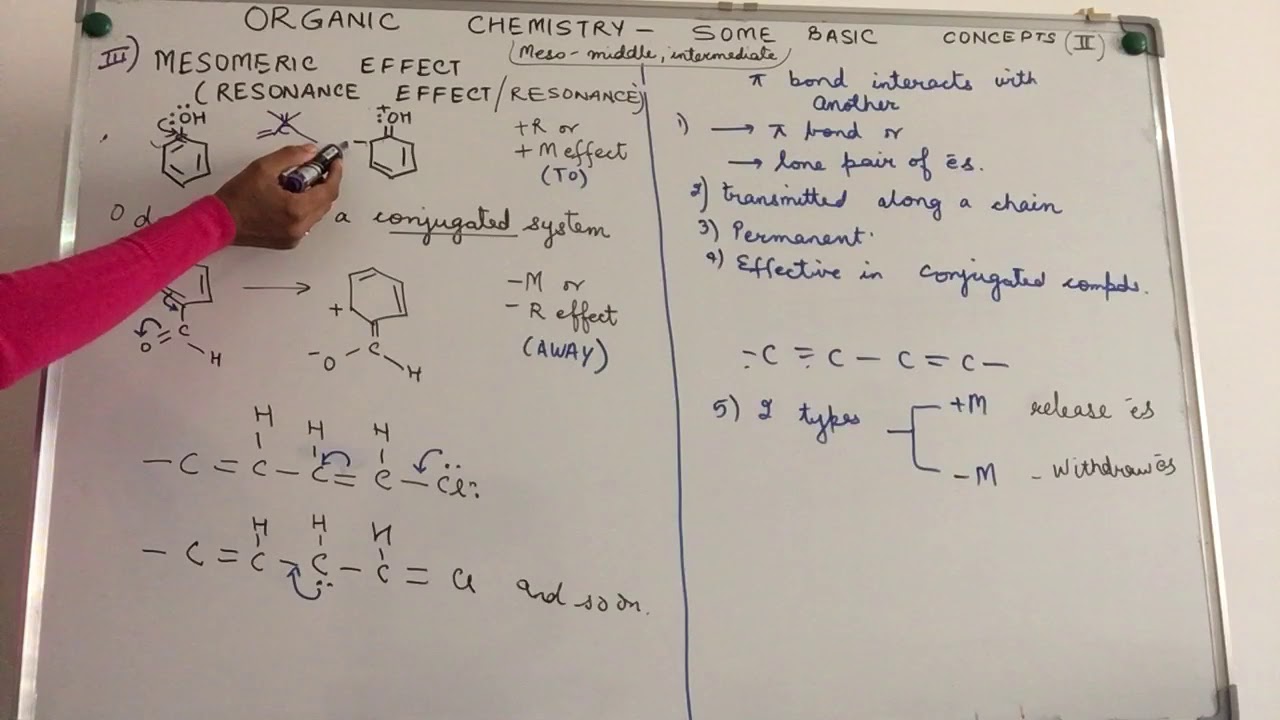 ORGANIC CHEMISTRY – SOME BASIC CONCEPTS (II)
III) MESOMERIC EFFECT
(Meso - middle, intermediate)
(RESONANCE EFFECT/RESONANCE)
:ÖH
+
:OH
–
+R or
+ M effect
(TO)
a conjugated system
–M or
– R effect
(AWAY)
O = C
H
+
–O
C
H
H H H
– C = C – C = C – Cl:
H H H
– C = C – C – C = Cl and so on.
π bond interacts with
another
1) → π bond or
→ lone pair of ēs.
2) transmitted along a chain
3) Permanent.
4) Effective in conjugated compds.
– C = C – C = C –
5) 2 types
+M release ēs
–M – withdraw ēs